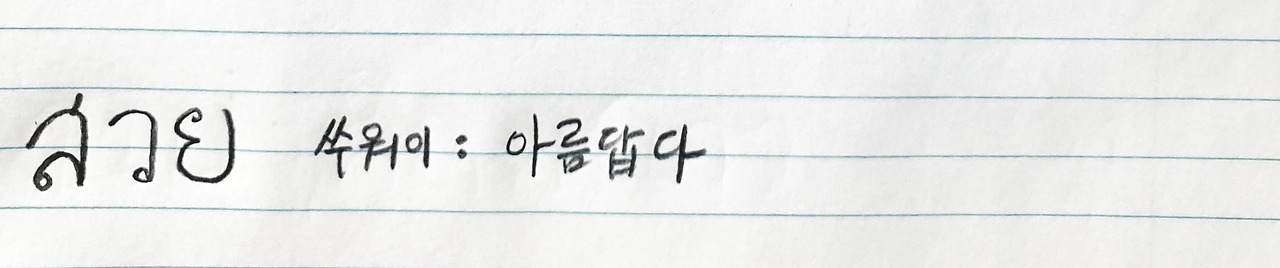 สวย 쑤워이 : 아름답다